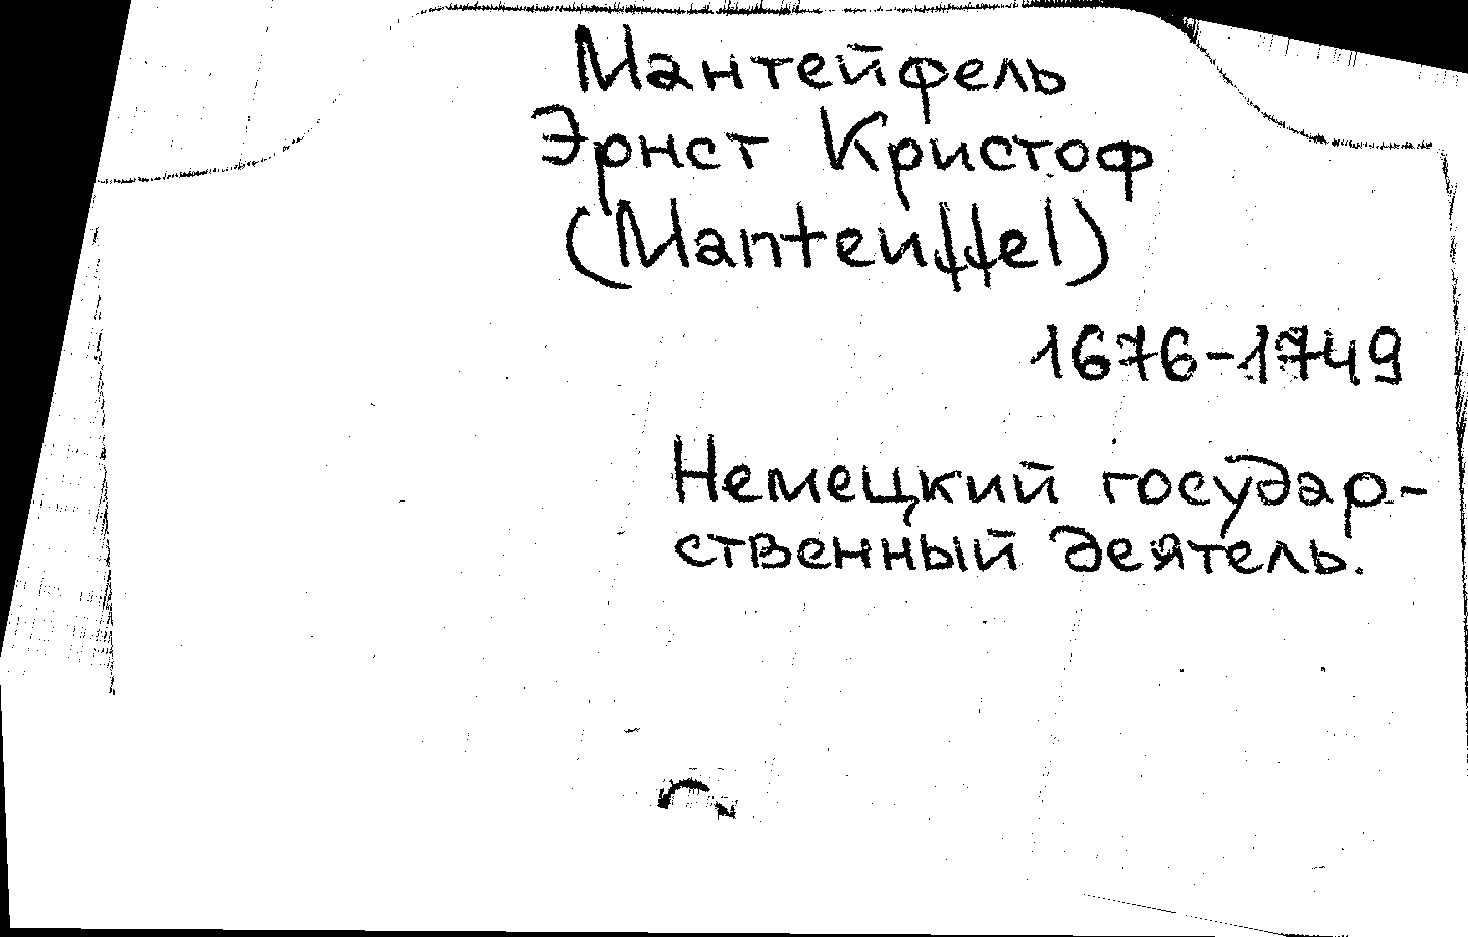 Мантейфель
Эрнст Кристоф
(Manteuffel)
1676-1749
Немецкий государ-
ственный деятель.